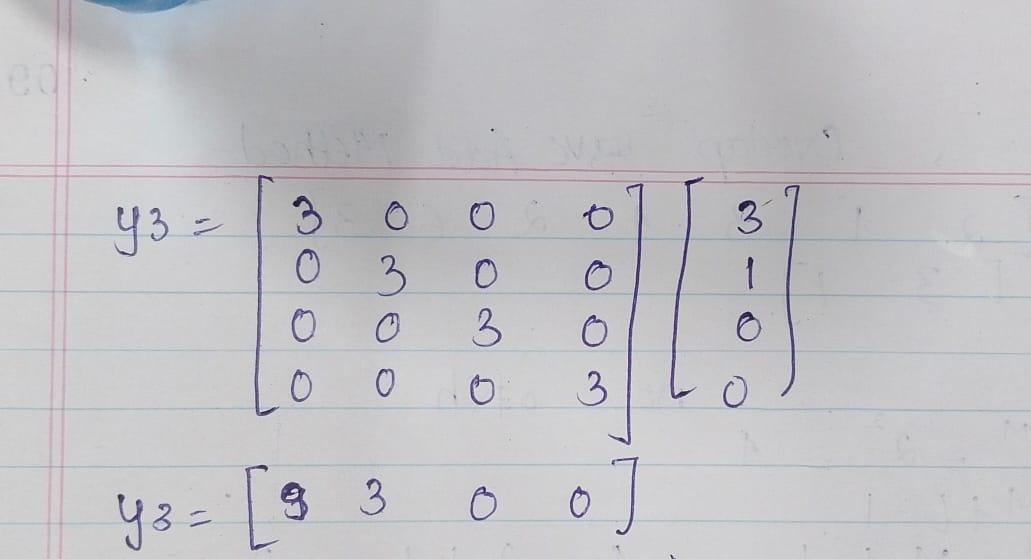 y3 = [ 3 0 0 0 ] [ 3 ]
0 3 0 0 1
0 0 3 0 0
0 0 0 3 0
y3 = [ 9 3 0 0 ]